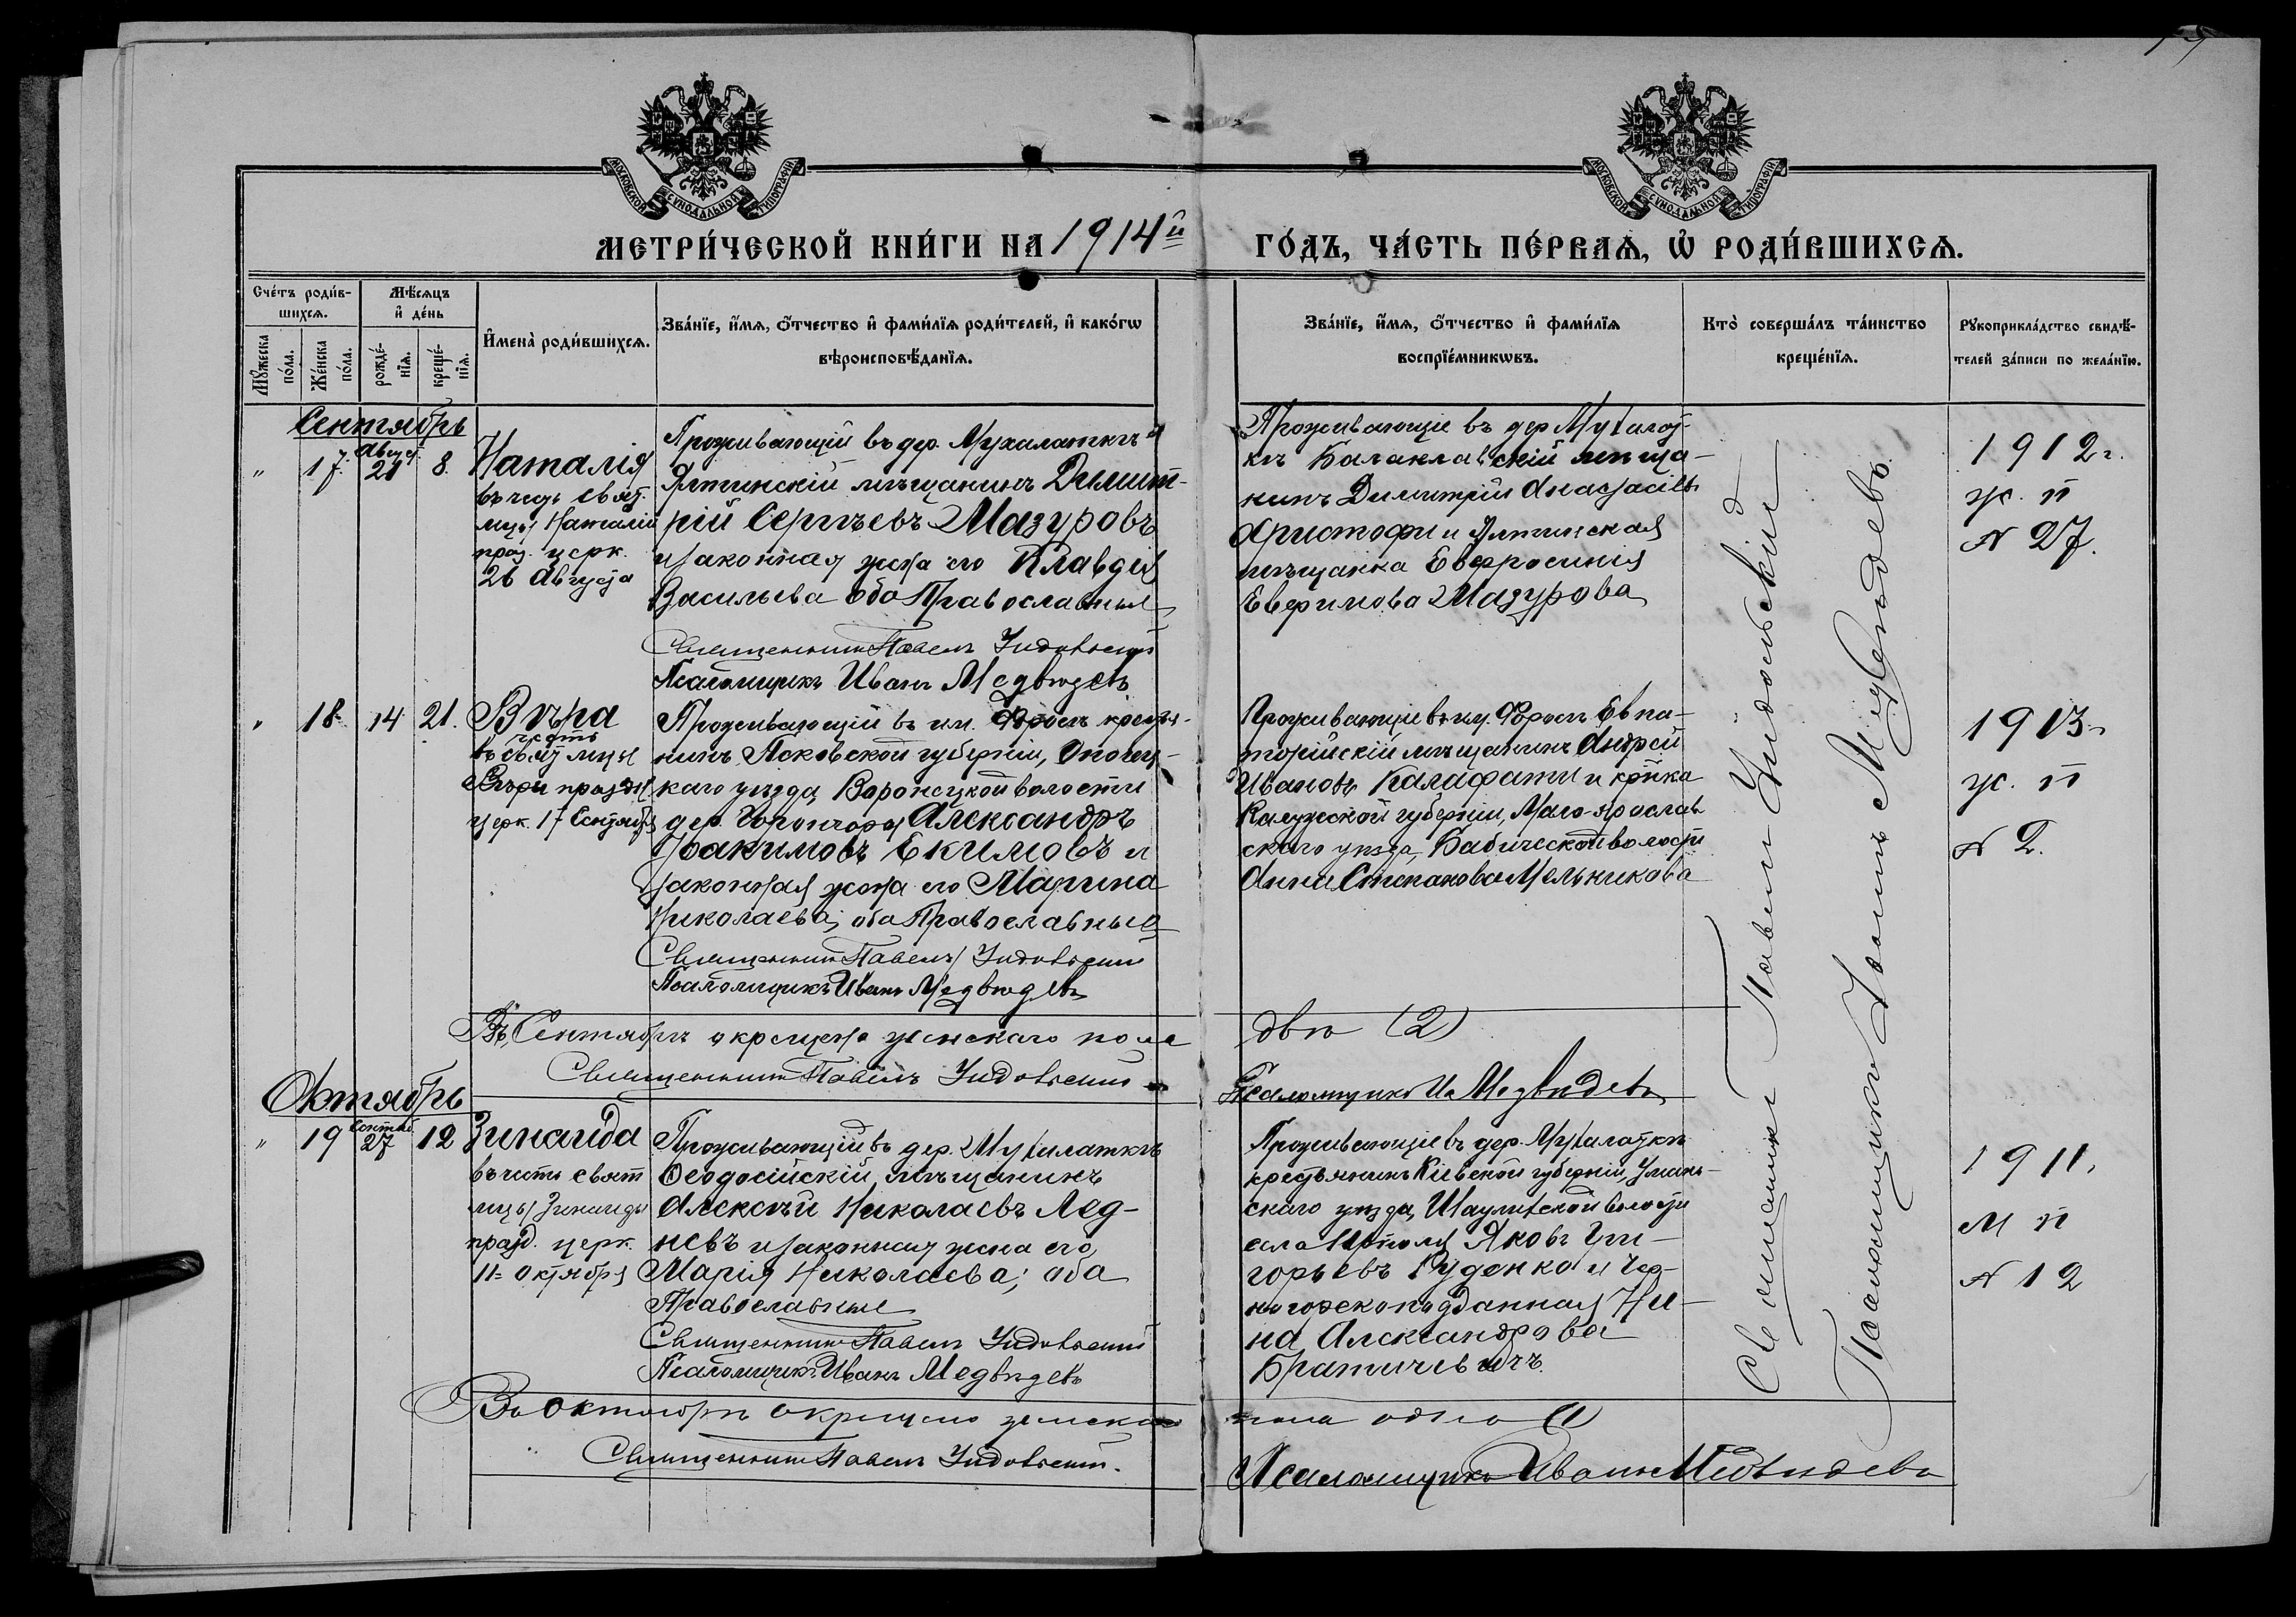 МОСКОВСКОЙ СѴНОДАЛЬНОЙ ТИПОГРАФІИ
МОСКОВСКОЙ СѴНОДАЛЬНОЙ ТИПОГРАФІИ
МЕТРИ́ЧЕСКОЙ КНИ́ГИ НА 1914й ГО́ДЪ, ЧА́СТЬ ПЕ́РВАѦ, Ѡ҆ РОДИ́ВШИХСѦ.
Сче́тъ роди́в-
шихсѧ.
Мѣ́сѧцъ
и҆ де́нь
Мꙋ́жеска
по́ла.
Же́нска
по́ла.
рожде́-
нїѧ.
креще́-
нїѧ.
И҆мена̀ роди́вшихсѧ.
Зва́нїе, и҆́мѧ, ѻ҆́тчество и҆ фами́лїѧ роди́телей, и҆ како́гѡ
вѣроисповѣ́данїѧ.
Зва́нїе, и҆́мѧ, ѻ҆́тчество и҆ фами́лїѧ
воспрїе́мникѡвъ.
Кто̀ соверша́лъ та́инство
креще́нїѧ.
Рꙋкоприкла́дство свидѣ́-
телей за́писи по жела́нїю.
Сентябрь
" 17. Август 21 8.
Наталія
въ честь свят.
мцы Наталіи
праз. церк.
26 Августа
Проживающій въ дер. Мухалаткѣ
Ялтинскій мѣщанинъ Димит-
рій Сергѣевъ Мазуровъ
и законная жена его Клавдія
Васильева оба Православные
Священникъ Павелъ Индовскій
Псаломщикъ Иванъ Медвѣдевъ
Проживающіе въ дер Мухалат-
кѣ Балаклавскій мѣща-
нинъ Димитрій Анастасіевъ
Христофи и Ялтинская
мѣщанка Евфросинія
Евфимова Мазурова
1912 г.
ж. п
N 27.
" 18 14 21.
Вѣра
въ честь
свят мцы
Вѣры праздн
церк. 17 Сентября
Проживающій въ им. Форосъ крестья-
нинъ Псковской губерніи, Опочец-
каго уѣзда, Воронецкой волости
дер. Александръ
Іоакимовъ Екимовъ и
законная жена его Марина
Николаева, оба Православные
Священникъ Павелъ Индовскій
Псаломщикъ Иванъ Медвѣдевъ
Проживающіе въ им. Форосъ Евпа-
торійскій мѣщанинъ Андрей
Ивановъ Калафати и кр-нка
Калужской губерніи, Мало-Ярослав
скаго уѣзда, Бабической волости
Анна Степанова Мельникова
1913
ж. п
N 2.
Въ Сентябрѣ окрещено женскаго пола двѣ (2)
Священникъ Павелъ Индовскій
Псаломщикъ Ив Медвѣдевъ
Октябрь
" 19 Сентяб. 27 12
Зинаида
въ честь свят
мцы Зинаиды
празд. церк.
11 Октября
Проживающій въ дер. Мухалаткѣ
Ѳеодосійскій мѣщанинъ
Алексѣй Николаевъ Лед-
невъ и законная жена его
Марія Николаева; оба
Православные
Священникъ Павелъ Индовскій
Псаломщикъ Иванъ Медвѣдевъ
Проживающіе въ дер. Мухалаткѣ
крестьянинъ Кіевской губерніи, Уман-
скаго уѣзда, волости
села Яковъ Гри-
горьевъ Руденко и Чер-
ногорско подданная Ни-
на Александрова
Братичевичъ
1911,
М п
N 12
Въ Октябрѣ окрещено женскаго пола одна (1)
Священникъ Павелъ Индовскій.
Псаломщикъ Иванъ Медвѣдевъ
Священникъ Павелъ Индовскій
Псаломщикъ Іоаннъ Медвѣдевъ